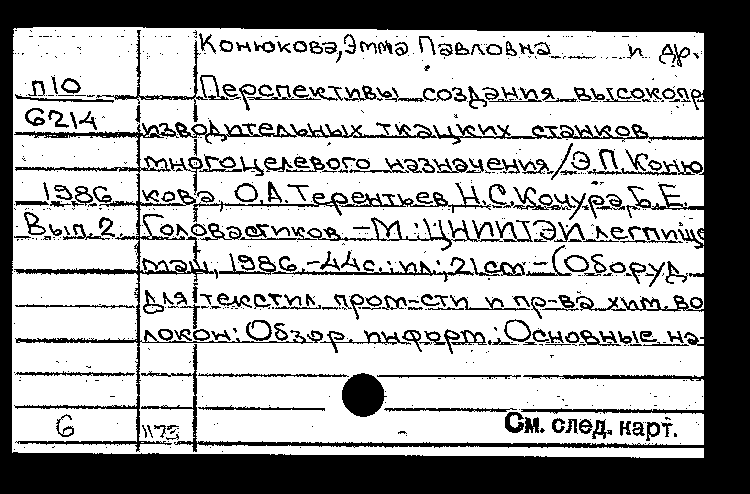 Конюкова, Эмма Павловна и др.
П10 Перспективы создания высокопро
6214 изводительных ткацких станков
многоцелевого назначения / Э.П. Коню
1986 кова, О.А. Терентьев, Н.С. Кочура, Б.Е.
Вып. 2 Головастиков. - М.: ЦНИИТЭИлегпище
маш, 1986. - 44с.: ил.; 21 см. - (Оборуд.
для текстил. пром-сти и пр-ва хим. во
локон: Обзор. информ.; Основные на-
6 1173 См. след. карт.